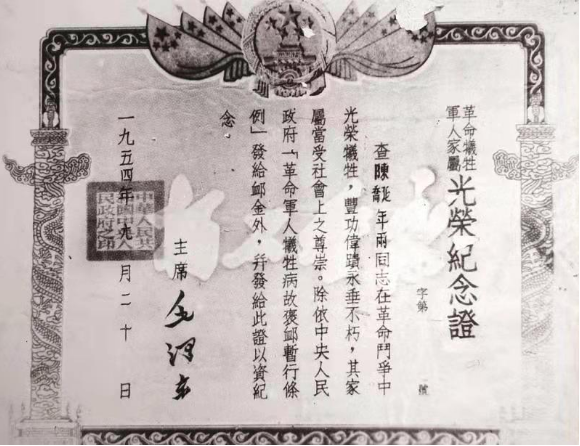 革命犧牲
軍人家屬
光榮紀念證
字第 號
查陳年兩同志在革命鬥爭中
光榮犧牲，豐功偉蹟永垂不朽，其家
屬當受社會上之尊崇。除依中央人民
政府「革命軍人犧牲病故褒卹暫行條
例」發給卹金外，幷發給此證以資紀
念
主席 毛澤東
一九五四年九月二十日
中華人民共
和國中央人
民政府之印